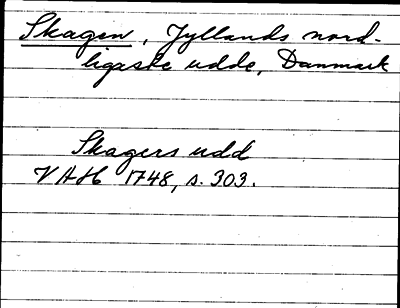 Skagen, Jyllands nord-
ligaste udde, Danmark
Skagers udd
VAH 1748, s. 303.